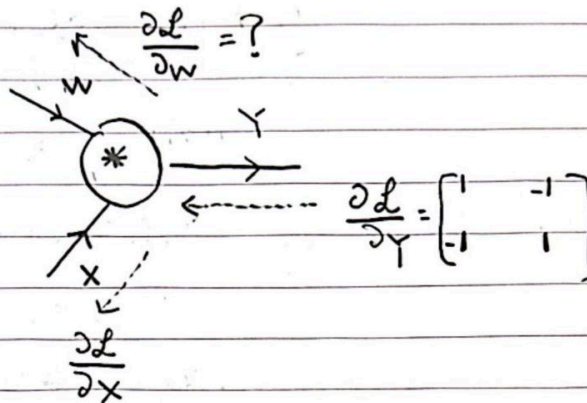 ∂ℒ/∂W = ?
W
Y
*
∂ℒ/∂Y = [1 -1
-1 1]
X
∂ℒ/∂X